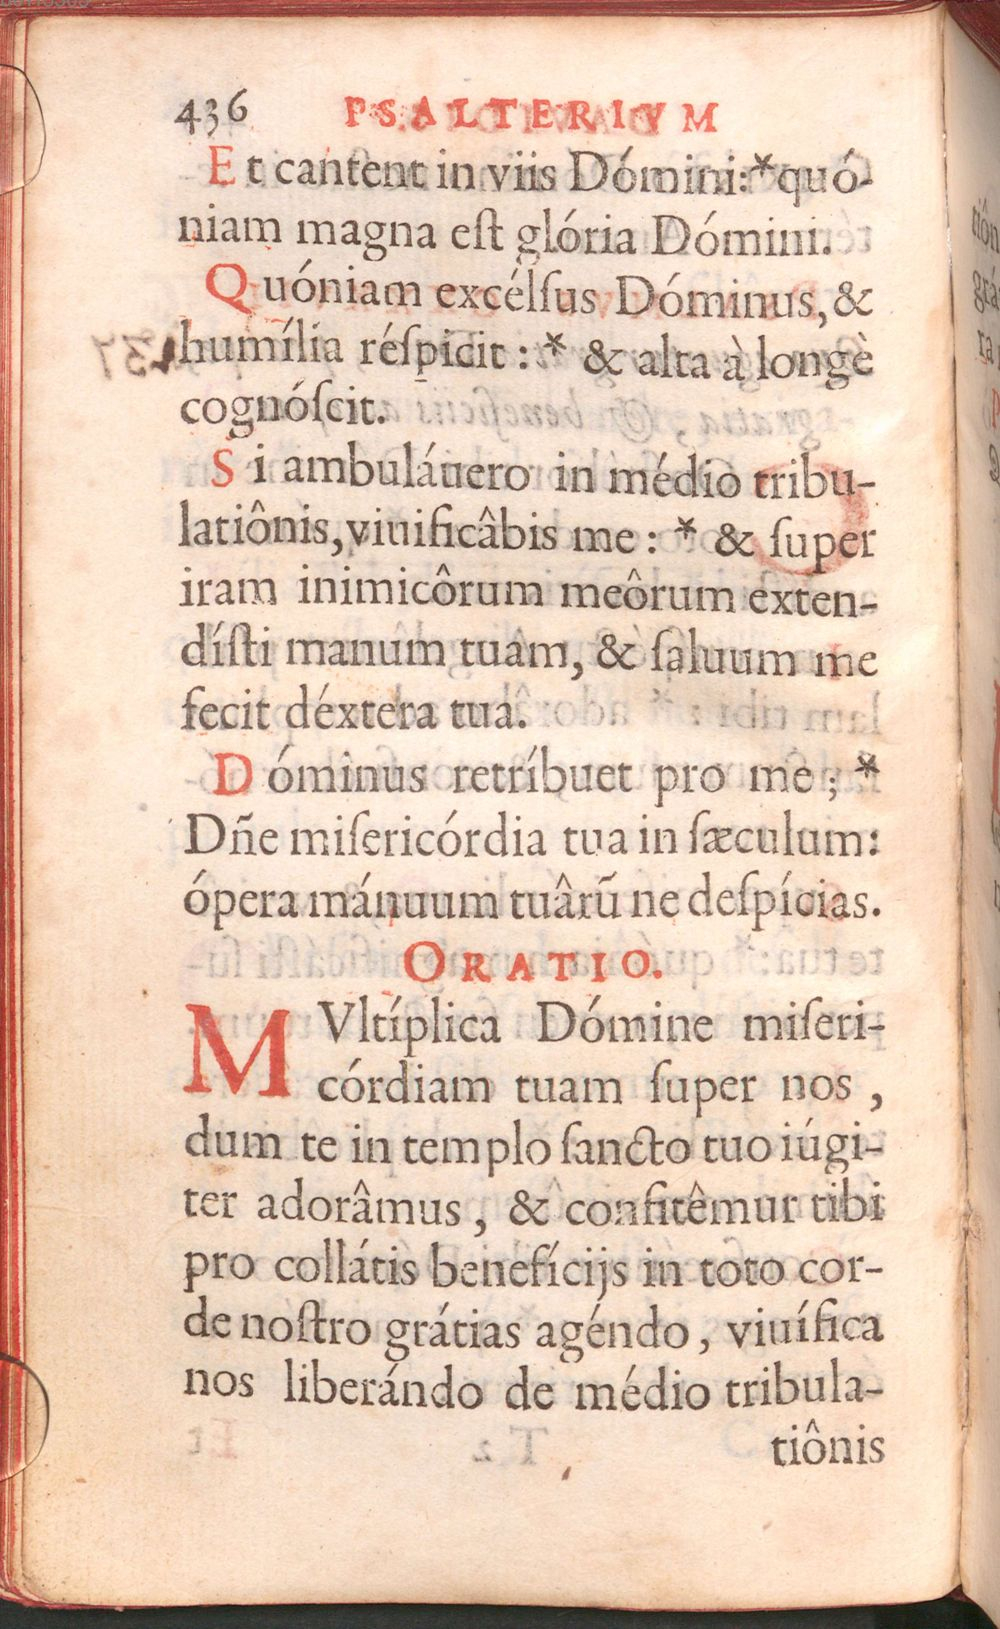 436 PSALTERIVM
Et cantent in viis Dómini:*quó-
niam magna eſt glória Dómini.
Quóniam excélſus Dóminus, &
humília réſpicit : * & alta à longè
cognóſcit.
Si ambuláuero in médio tribu-
latiônis, viuificâbis me : * & ſuper
iram inimicôrum meôrum exten-
díſti manum tuam, & ſaluum me
fecit déxtera tua.
Dóminus retríbuet pro me ; *
Dñe miſericórdia tua in ſæculum:
ópera mánuum tuârũ ne deſpícias.
ORATIO.
MVltíplica Dómine miſeri-
córdiam tuam ſuper nos ,
dum te in templo ſancto tuo iúgi-
ter adorâmus, & confitêmur tibi
pro collátis benefícijs in toto cor-
de noſtro grátias agéndo, viuífica
nos liberándo de médio tribula-
tiônis